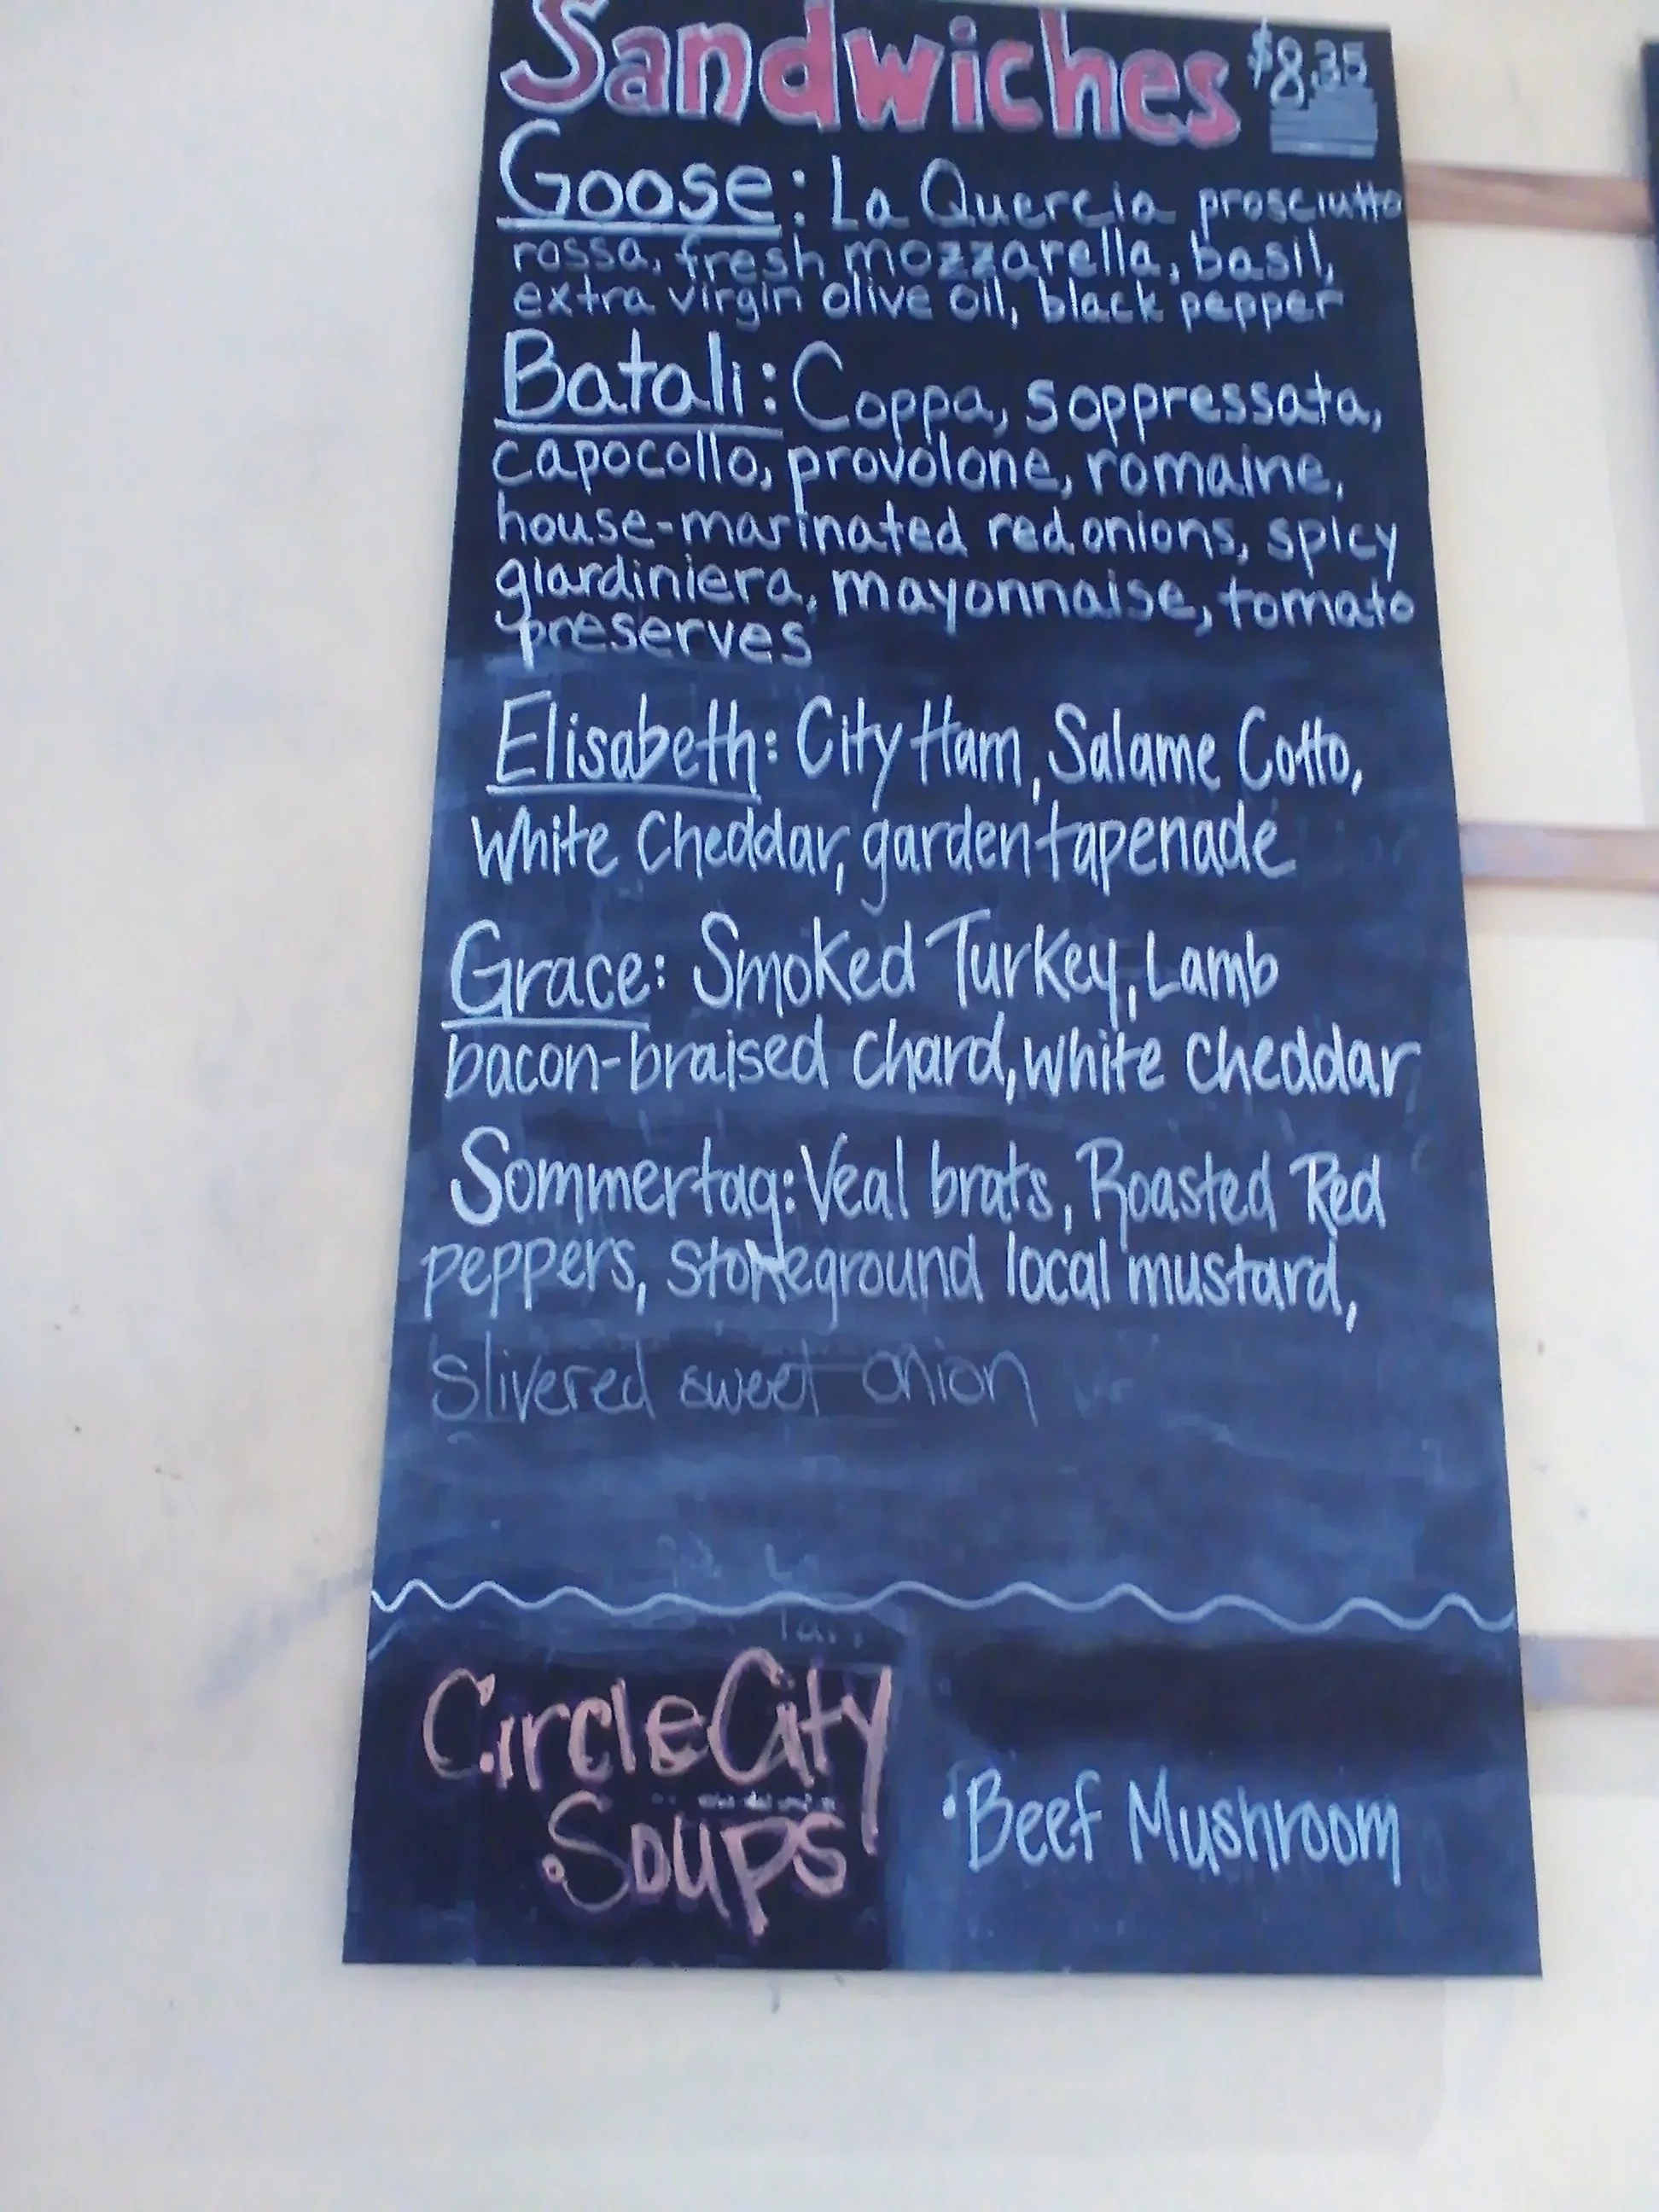 Sandwiches $8.35
Goose: La Quercia prosciutto
rossa, fresh mozzarella, basil,
extra virgin olive oil, black pepper
Batali: Coppa, soppressata,
capocollo, provolone, romaine,
house-marinated red onions, spicy
giardiniera, mayonnaise, tomato
preserves
Elisabeth: City Ham, Salame Cotto,
White Cheddar, garden tapenade
Grace: Smoked Turkey, Lamb
bacon-braised chard, white cheddar
Sommertag: Veal brats, Roasted Red
peppers, stoneground local mustard,
slivered sweet onion
Circle City
Soups
•Beef Mushroom